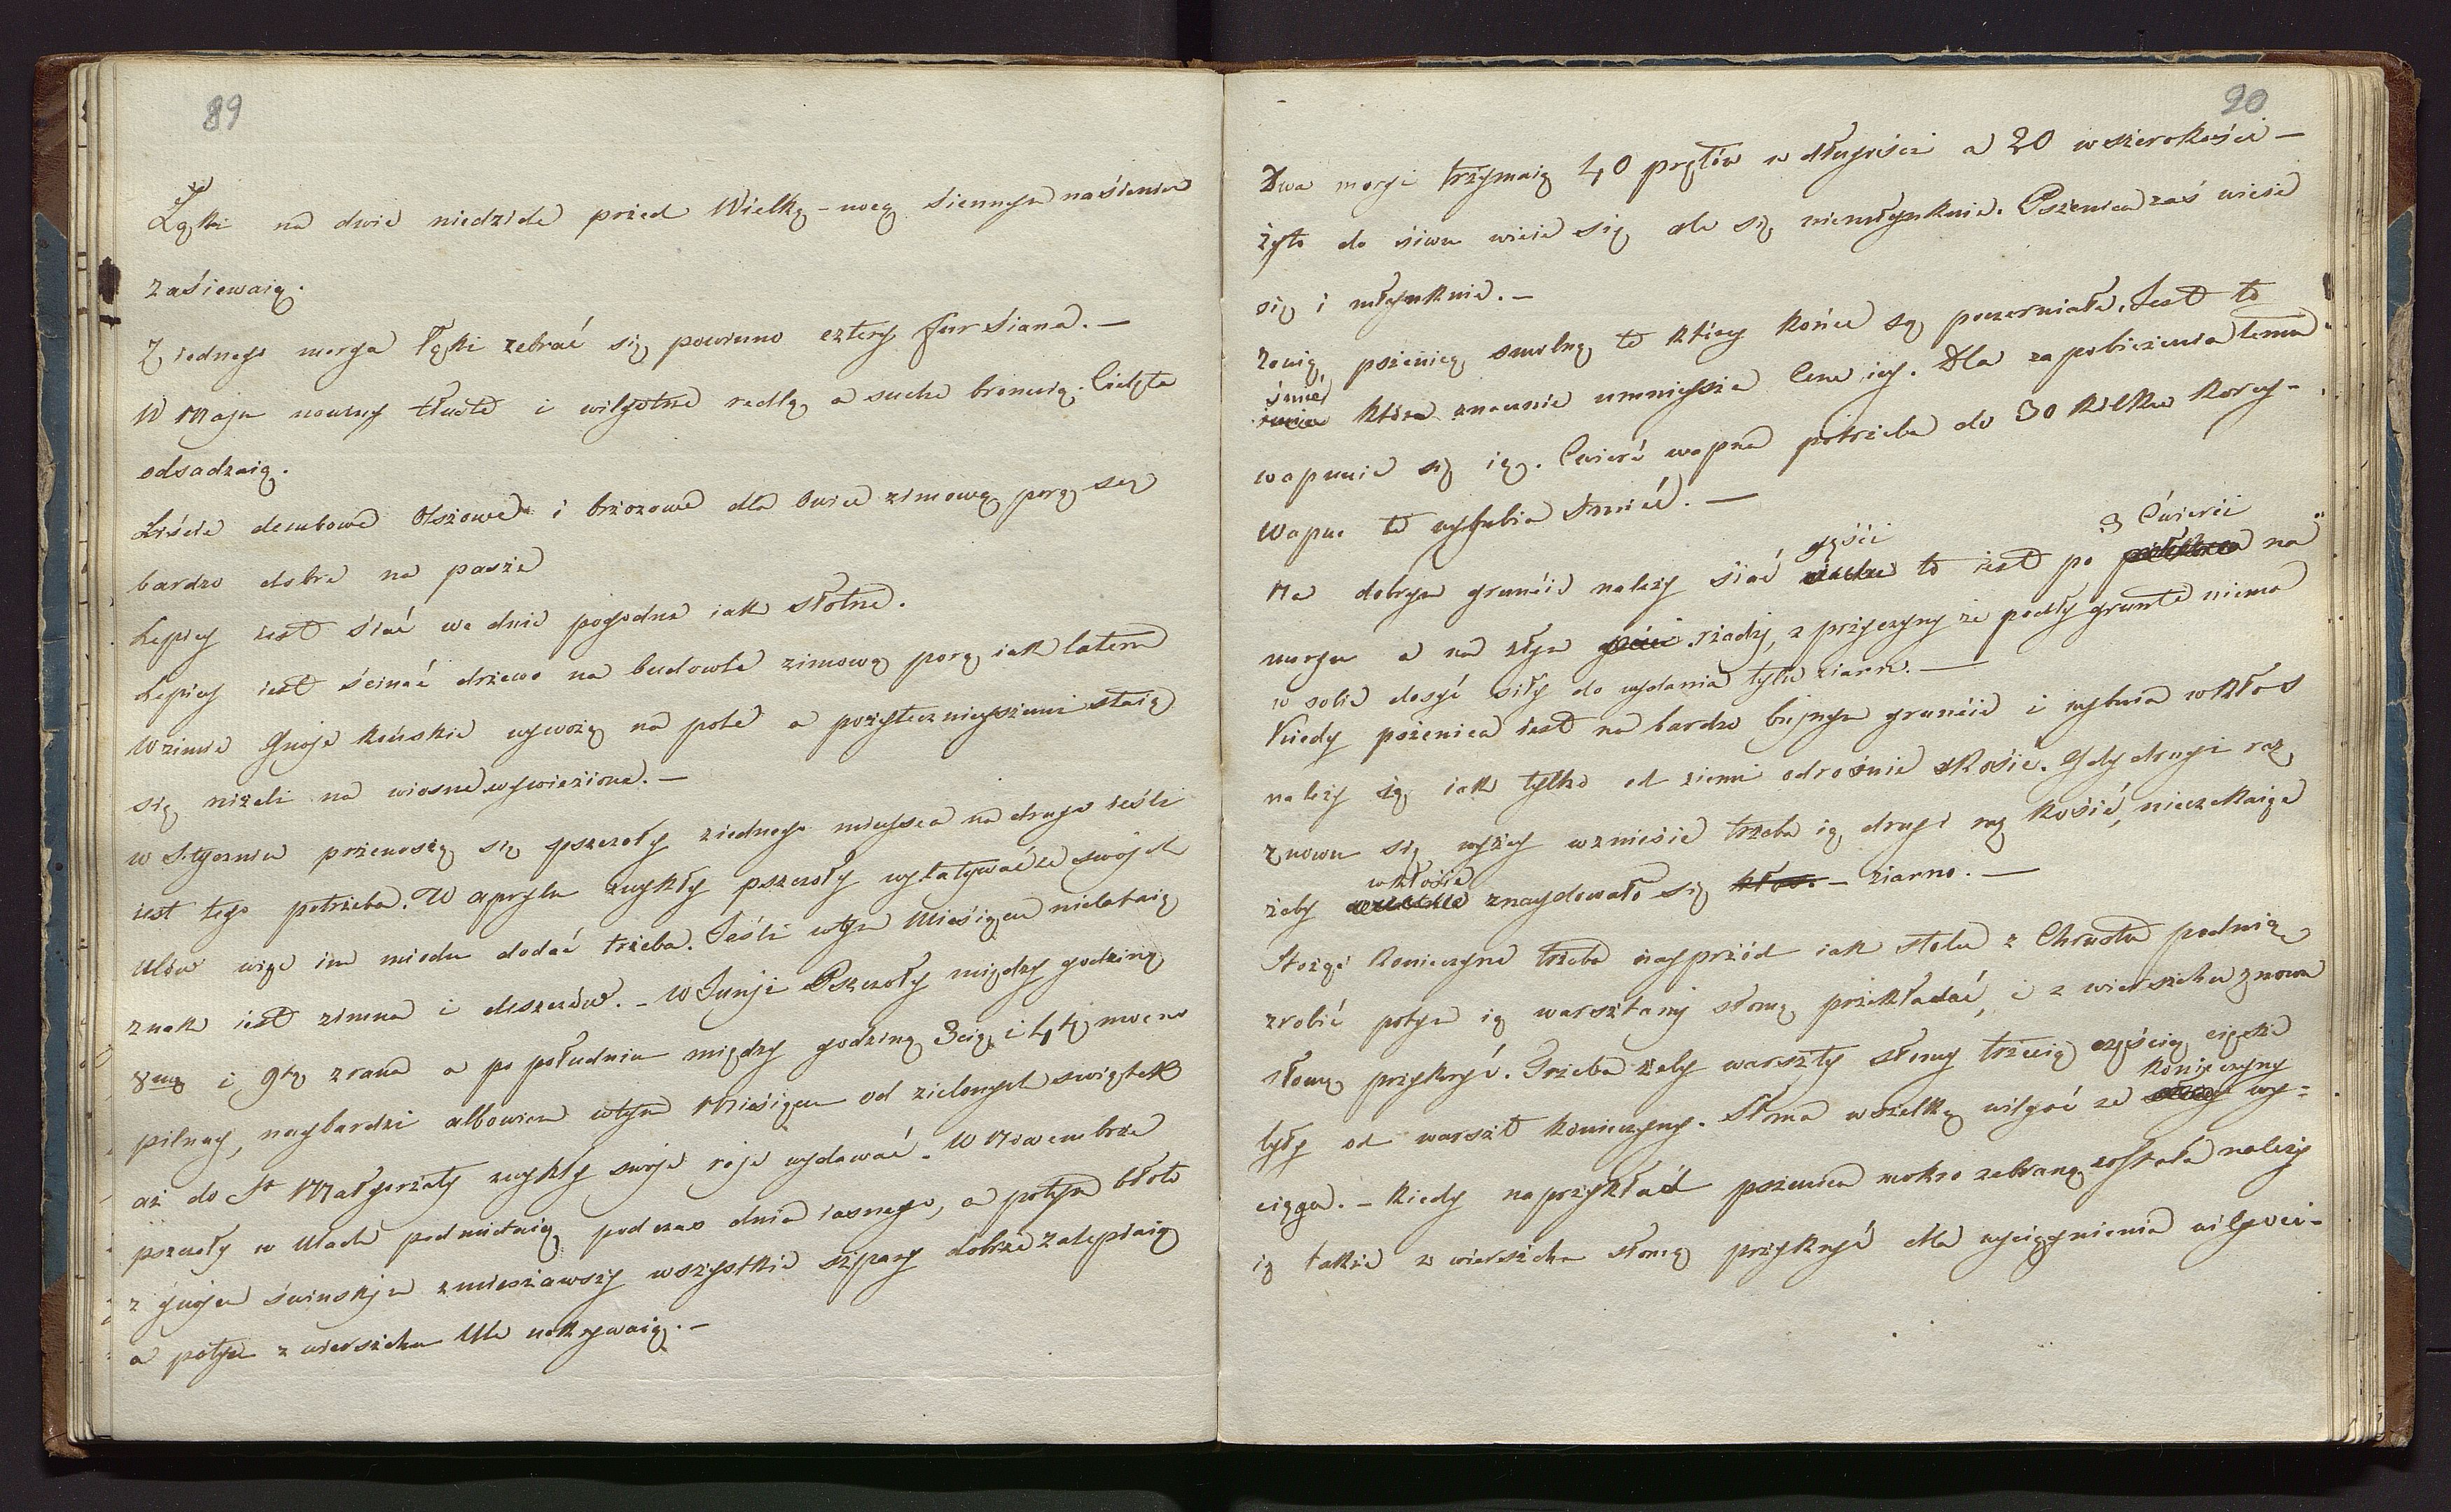 89
Łąki na dwie niedziele przed Wielką-nocą siennym nasieniem
zasiewaią.
Z iednego morga łąki zebrać się powinno cztery fur siana. —
W Maju nowiny tłuste i wilgotne redlą, a suche bronuią. Cielęta
odsadzaią.
Liście dembowe Olszowe i brzozowe dla Owiec zimową porą są
bardzo dobre na paszę
Lepiey iest siać we dnie pogodne iak słotne.
Lepiey iest ścinać drzewo na budowle zimową porą iak latem
W zimie Gnoje końskie wywożą na pole a pożytecznieyszemi staią
się niżeli na wiosne wywiezione. —
w Styczniu przenoszą się pszczoły ziednego mieysca na drugie ieśli
iest tego potrzeba. W Aprylu zwykły pszczoły wylatywać ze swoich
Ulów więc im miodu dodać trzeba. Jeśli wtym Miesiącu nielataią
znak iest zimna i deszczów. – W Junji Pszczoły między godziną
8mą i 9tą zrana a po południu między godziną 3cią i 4tą mocno
pilnuy, naybardzi albowiem wtym Miesiącu od zielonych swiątek
aż do St Małgorzaty zwykły swoje roje wydawać. W Nowembrze
pszczoły w Ulach podmiataią podczas dnia iasnego, a potym błoto
z gnojem świnskjm zmieszawszy wszystkie szpary dobrze zalepiaią
a potym z wierszchu Ule nakrywaią. —
90
Dwa morgi trzymaią 40 prętów w długości a 20 w szerokości —
żyto do siwu wieie się ale się niemłynkuie. Pszenica zaś wieie
się i młynkuie. —
Zowią pszenicę smolną tę którey końce są poczerniałe. Jest to
śnieć
która znacznie umnieysza Cenę iey. Dla zapobieżenia temu
wapnuie się ią. Cwierć wapna potrzeba do 30 kilku korcy —
Wapno te wygubia Snieć. —
gęści 3 Ćwierci
Na dobrym gruncie należy siać to iest po na
morgu a na złym rzadzy, z przyczyny że podły grunt niema
w sobie dosyć siły do wydania tylu ziarn. —
Kiedy pszenica iest na bardzo bujnym gruncie i wybuia w kłos
należy ią iak tylko od ziemi odrośnie skosić. Gdy drugi raz
znowu się wyżey wzniesie trzeba ią drugi raz kosić, nieczekaiąc
w kłosie
żeby znaydowało się kłos — ziarno. —
Stożąc Koniczynę trzeba nayprzód iak stołu z Chrustu podnią
zrobić potym ią warsztamj słomą przekładać, i z wierszchu znowu
słomą przykryć. Trzeba żeby warszty słomy trzecią częścią cięższe
były od warszt koniczyny. Słoma wszelką wilgoć ze koniczyny wy-
ciąga. — Kiedy naprzykład pszenica mokro zebraną została należy
ią także z wierszchu słomą przykryć dla wyciągnienia wilgoci —